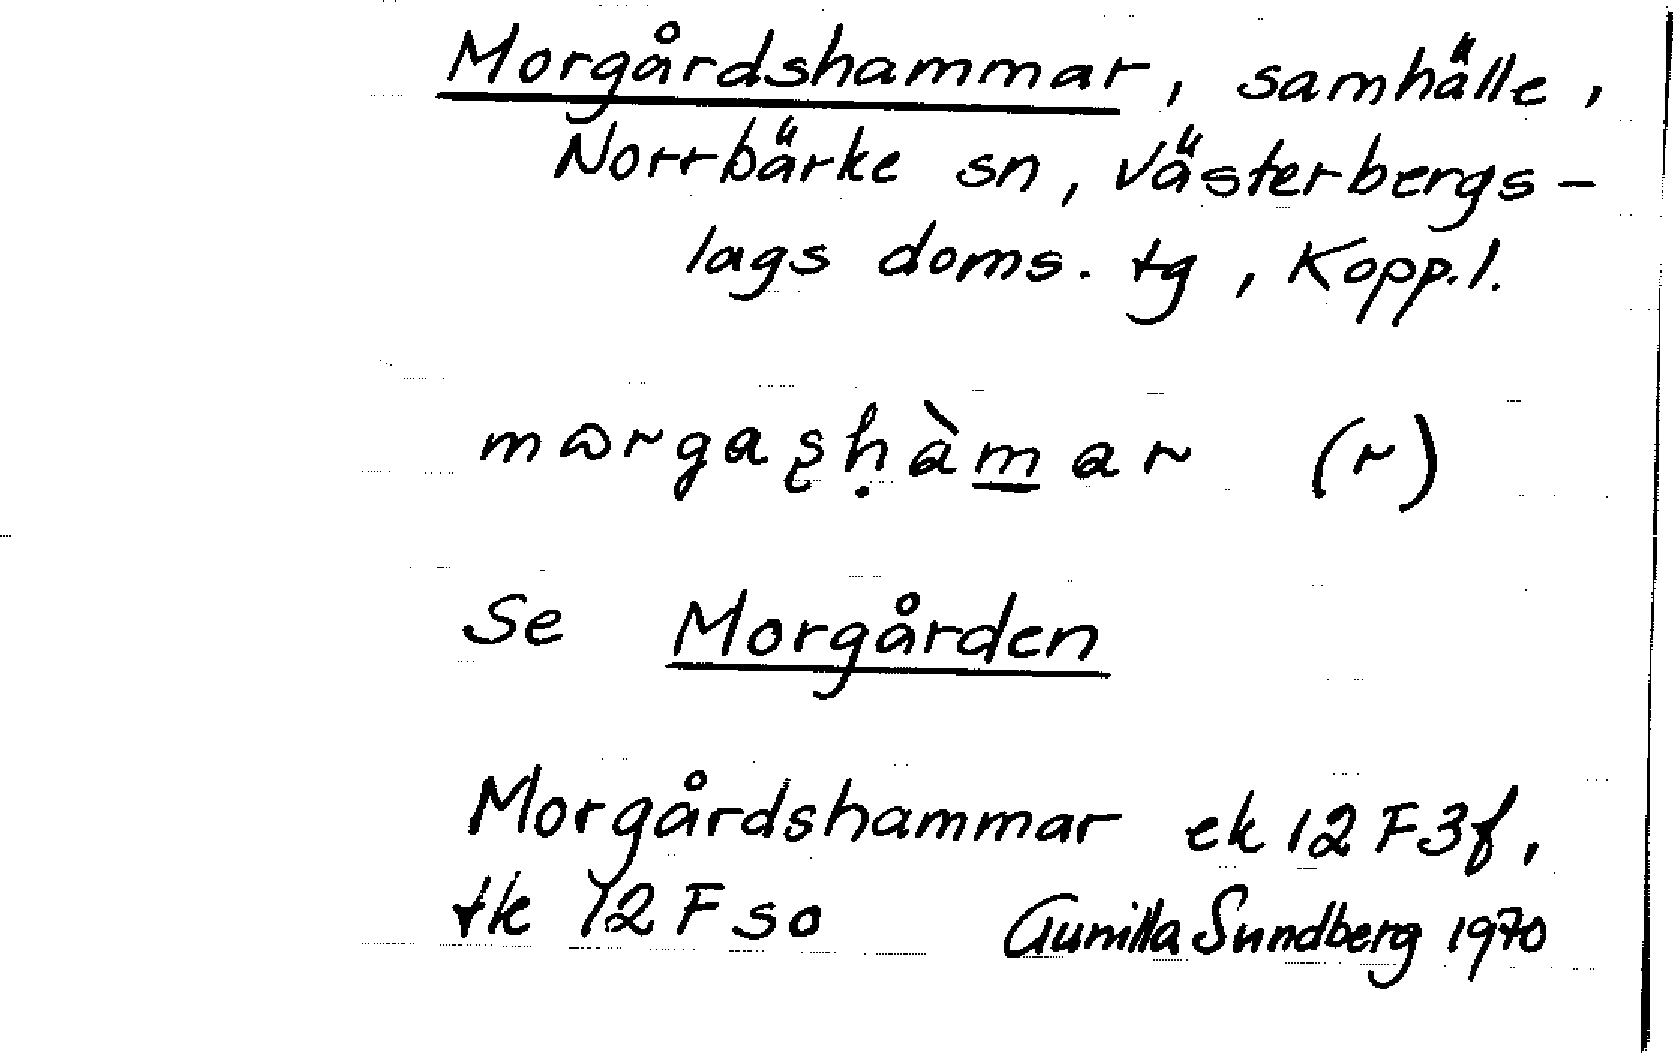 Morgårdshammar, samhälle,
Norrbärke sn, Västerbergs-
lags doms. tg, Kopp.l.
mωrgaʂḥàm̲ar (r)
Se Morgården
Morgårdshammar ek 12 F 3f,
tk 12 F so Gunilla Sundberg 1970